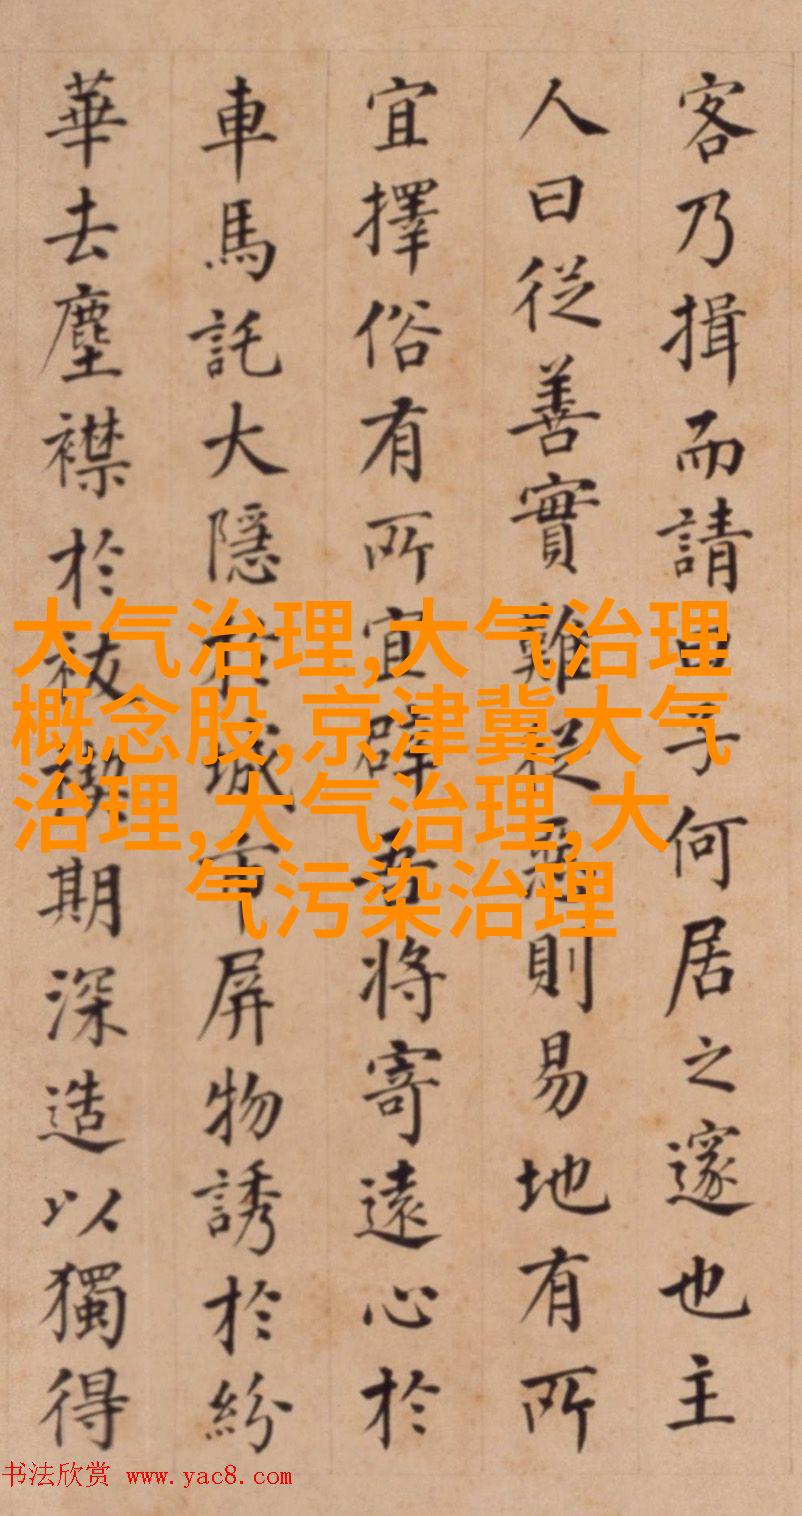 客乃揖而請曰子何居之邃也主
人曰從善實難從惡則易地有所
宜擇俗有所宜辟吾將寄遠心於
車馬託大隱於城市屏物誘於紛
華去塵襟於祓禊期深造以獨得
大气治理,大气治理
概念股,京津冀大气
治理,大气治理,大
气污染治理
书法欣赏 www.yac8.com